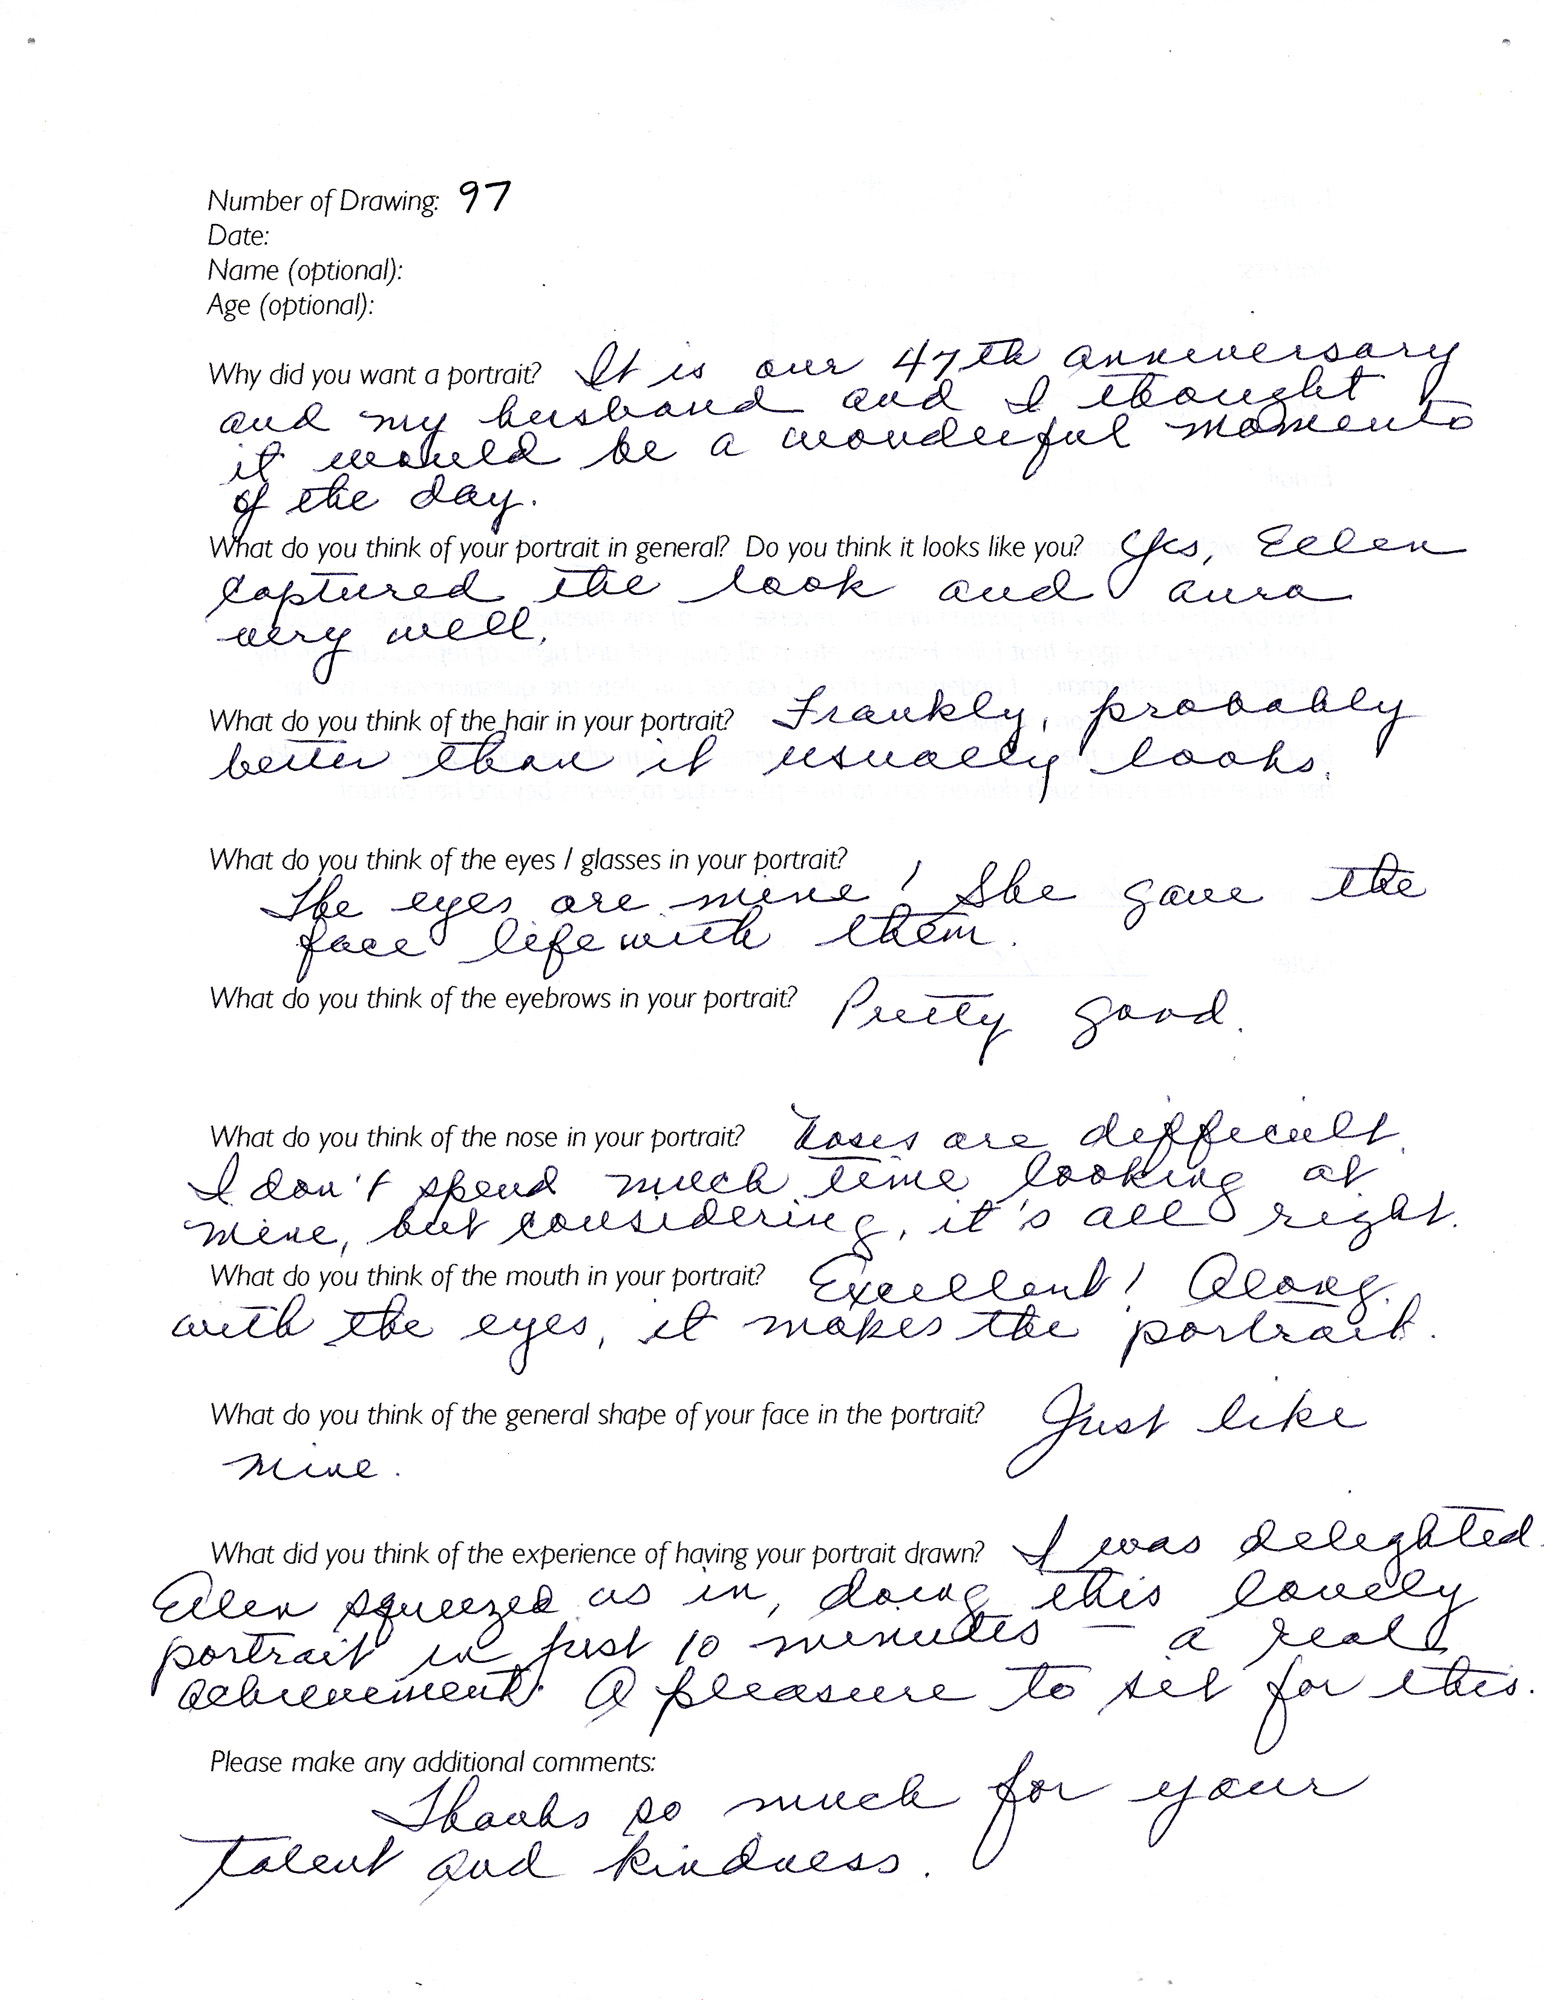 Number of Drawing: 97
Date:
Name (optional):
Age (optional):
Why did you want a portrait? It is our 47th anniversary
and my husband and I thought
it would be a wonderful momento
of the day.
What do you think of your portrait in general? Do you think it looks like you? Yes, Ellen
captured the look and aura
very well.
What do you think of the hair in your portrait? Frankly, probably
better than it usually looks.
What do you think of the eyes / glasses in your portrait?
The eyes are mine! She gave the
face life with them.
What do you think of the eyebrows in your portrait? Pretty good.
What do you think of the nose in your portrait? Noses are difficult.
I don't spend much time looking at
mine, but considering, it's all right.
What do you think of the mouth in your portrait? Excellent! Along
with the eyes, it makes the portrait.
What do you think of the general shape of your face in the portrait? Just like
mine.
What did you think of the experience of having your portrait drawn? I was delighted.
Ellen squeezed us in, doing this lovely
portrait in just 10 minutes – a real
achievement. A pleasure to sit for this.
Please make any additional comments:
Thanks so much for your
talent and kindness.